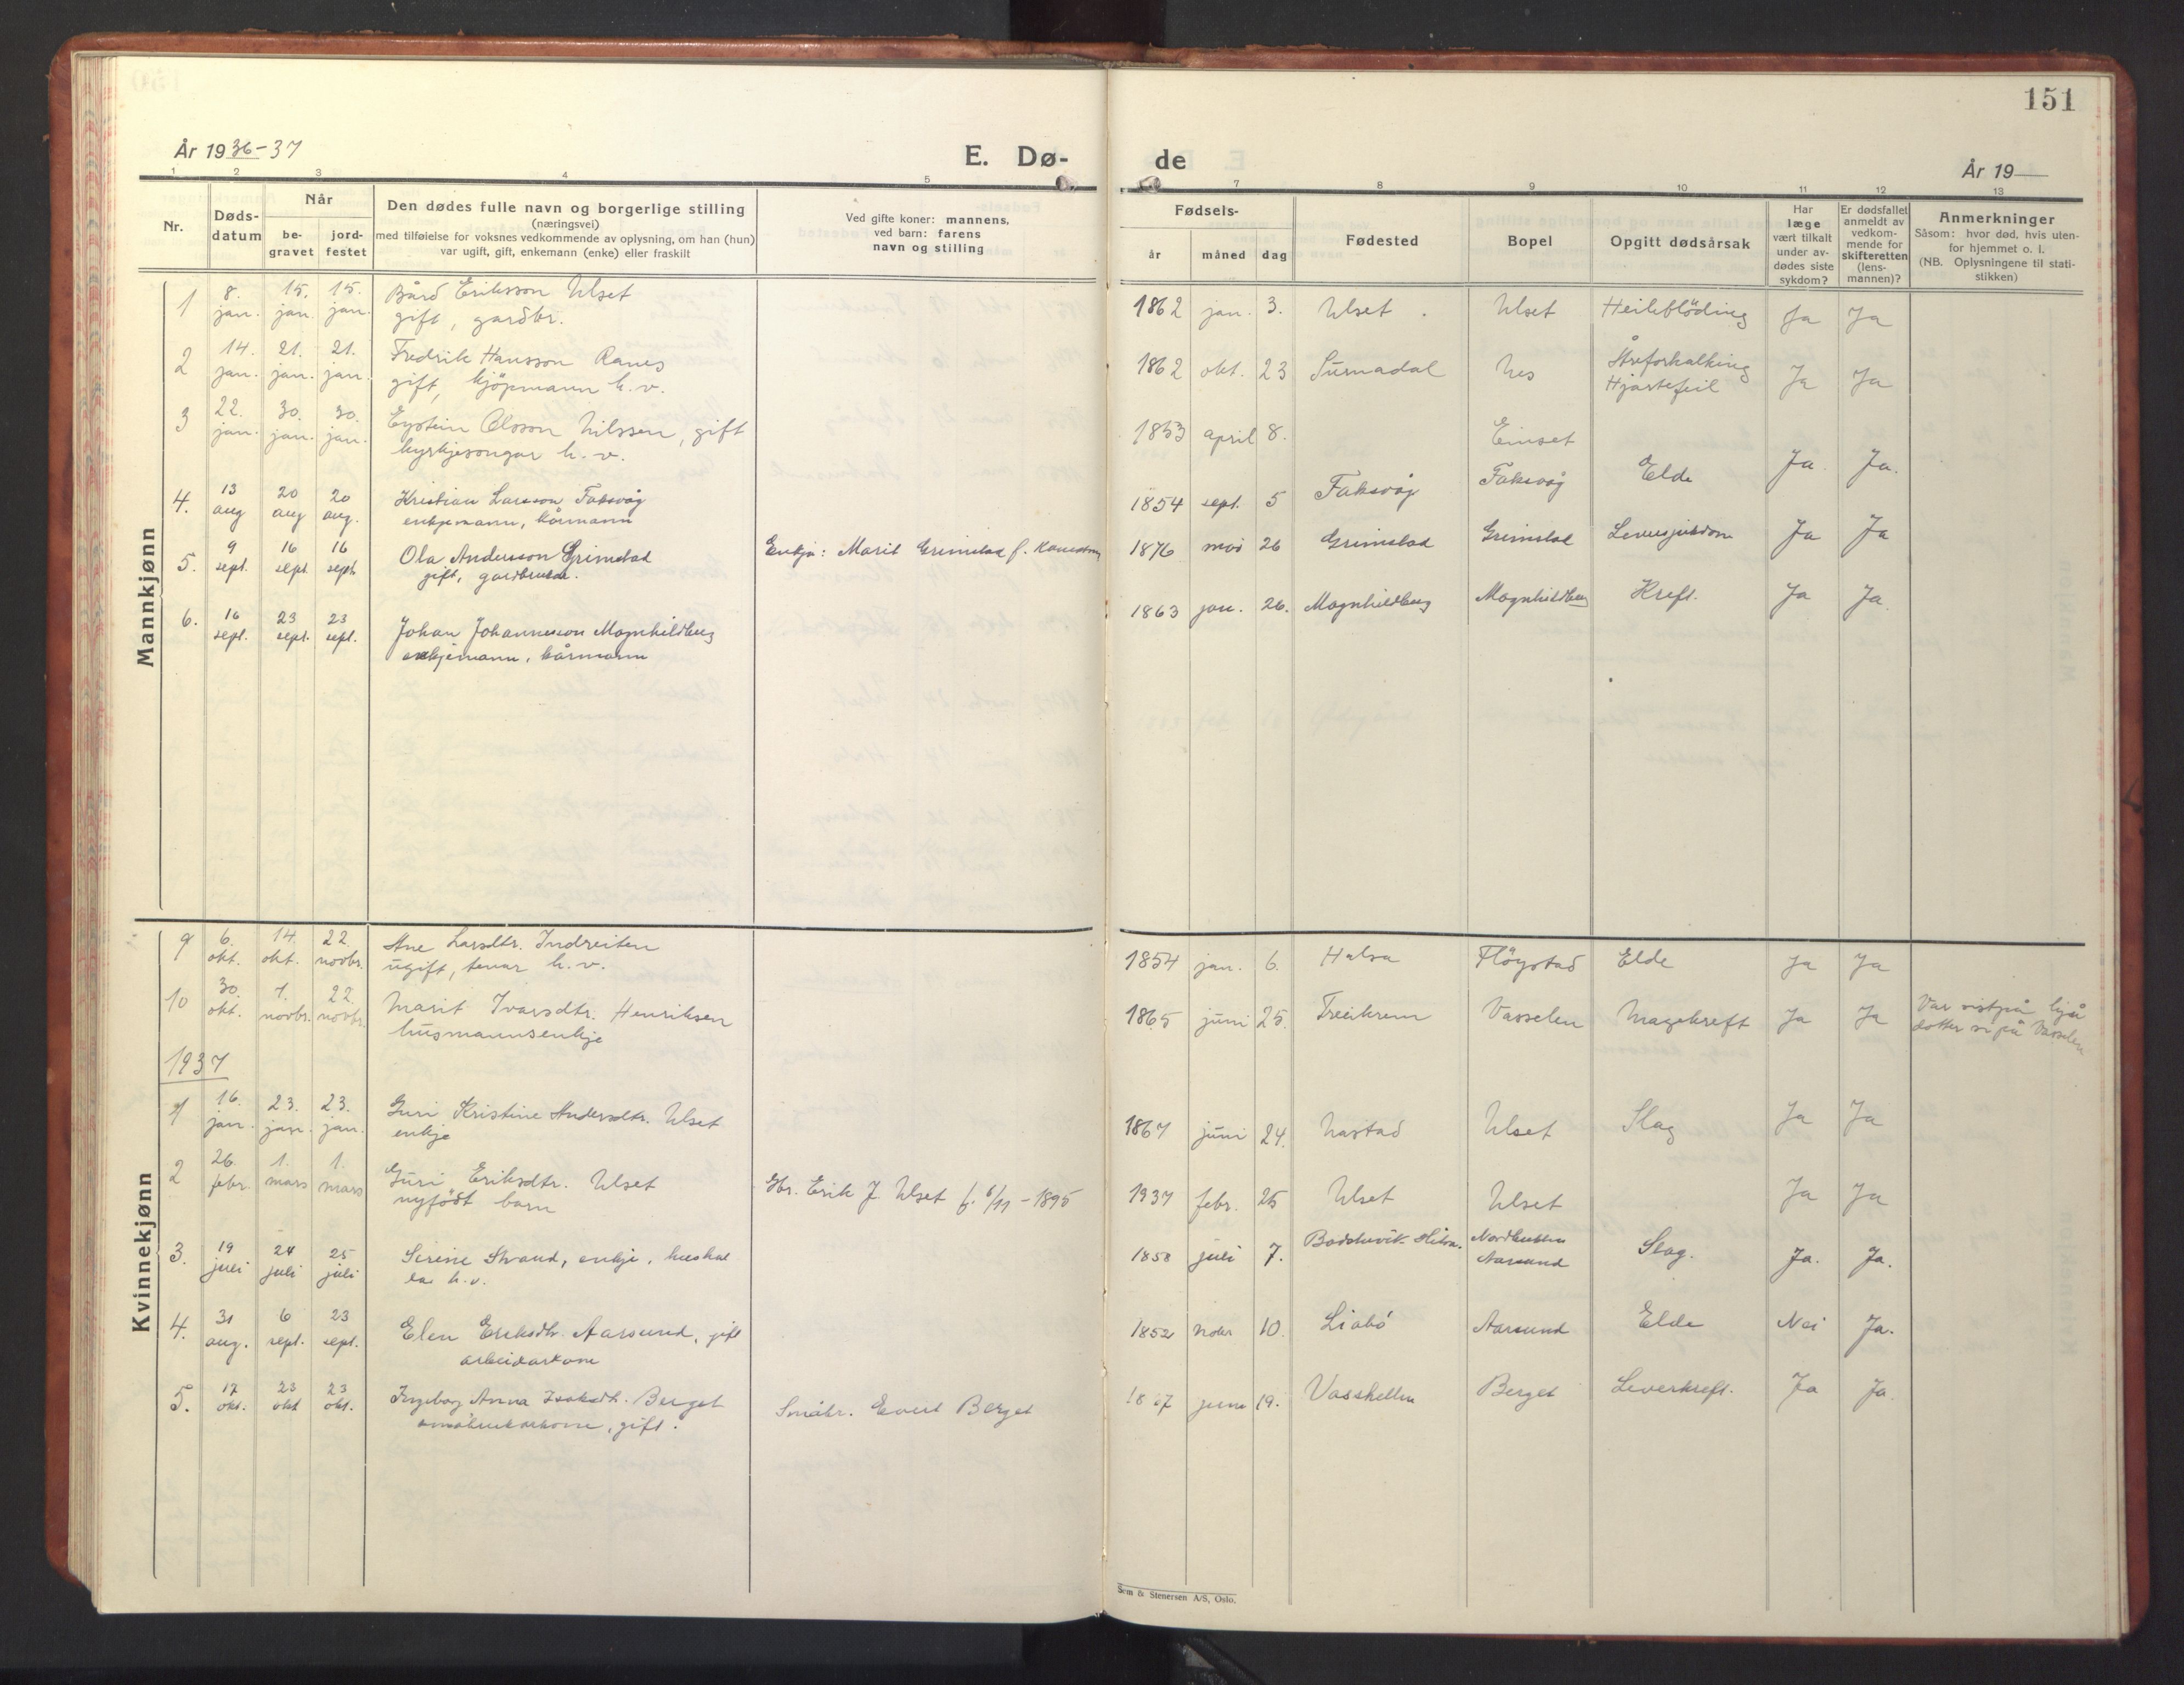 151
År 1936-37
E. Dø-
de
År 19
1 2 3 4 5 7 8 9 10 11 12 13
Nr.
Døds-
datum
Når
be-
gravet
jord-
festet
Den dødes fulle navn og borgerlige stilling
(næringsvei)
med tilføielse for voksnes vedkommende av oplysning, om han (hun)
var ugift, gift, enkemann (enke) eller fraskilt
Ved gifte koner: mannens,
ved barn: farens
navn og stilling
Fødsels-
år måned dag
Fødested
Bopel
Opgitt dødsårsak
Har
læge
vært tilkalt
under av-
dødes siste
sykdom?
Er dødsfallet
anmeldt av
vedkom-
mende for
skifteretten
(lens-
mannen)?
Anmerkninger
Såsom: hvor død, hvis uten-
for hjemmet o. l.
(NB. Oplysningene til stati-
stikken)
Mannkjønn
1 8. jan. 15. jan. 15. jan. Bård Eriksson Ulset
gift, gardbr.
1862 jan. 3. Ulset Ulset Heilebløding Ja Ja
2 14. jan. 21. jan. 21. jan. Fredrik Hansson Ranes
gift, kjöpmann h. v.
1862 okt. 23 Surnadal Nes Åreforkalking
Hjartefeil Ja Ja
3 22. jan. 30. jan. 30. jan. Eystein Olsson Nilssen, gift
kyrkjesongar h. v.
1853 april 8. Einset
4. 13 aug 20 aug 20 aug. Kristian Larsson Faksvåg
enkjemann, kårmann
1854 sept. 5 Faksvåg Faksvåg Elde Ja Ja.
5. 9 sept. 16 sept. 16 sept. Ola Andersson Grimstad
gift, gardbrukar.
Enkja: Marit Grimstad f.
1876 mai 26 Grimstad Grimstad Leversjukdom Ja Ja
6. 16 sept. 23 sept. 23 sept. Johan Johannesson Magnhildberg
enkjemann, kårmann
1863 jan. 26. Magnhildberg Magnhildberg Kreft. Ja Ja.
Kvinnekjønn
9 6. okt. 14. okt. 22. novbr. Ane Larsdtr. Indreiten
ugift, tenar h. v.
1854 jan. 6. Halsa Flöystad Elde Ja Ja
10 30. okt. 7. novbr. 22. novbr. Marit Ivarsdtr. Henriksen
husmannsenkje
1865 juni 25. Freikrem Vasselen Magekreft Ja Ja Var vist på hjå
dotter si på Vasselen
1937
1 16. jan. 23. jan. 23. jan. Guri Kristine Andersdtr. Ulset
enkje
1867 juni 24. Nastad Ulset Slag Ja Ja
2 26. febr. 1. mars 1. mars Guri Eriksdtr. Ulset
nyfödt barn
Gbr. Erik J. Ulset f. 6/11 - 1895
1937 febr. 25 Ulset Ulset Ja Ja
3. 19 juli 24 juli 25 juli Serine Strand, enkje, hushal
lar h. v.
1858 juli 7. Hitra. Aarsund Slag. Ja. Ja.
4. 31 aug. 6 sept. 23 sept. Elen Eriksdtr. Aarsund, gift
arbeidarkone
1852 novbr 10. Liabö Aarsund Elde Nei Ja.
5. 17 okt. 23 okt 23 okt. Ingeborg Anna Isaksdtr. Berget
småbrukarkone, gift.
Småbr. Evert Berget
1867 juni 19. Vasshellen Berget Leverkreft. Ja Ja.
Sem & Stenersen A/S, Oslo.